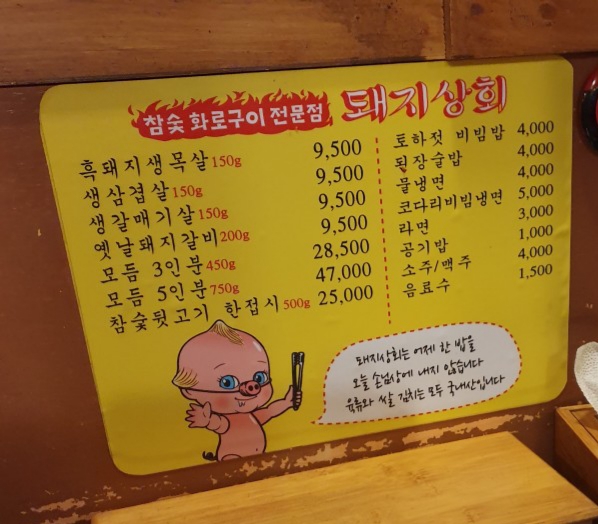 참숯 화로구이 전문점 돼지상회
흑돼지생목살 150g 9,500
생삼겹살 150g 9,500
생갈매기살 150g 9,500
옛날돼지갈비 200g 9,500
모듬 3인분 450g 28,500
모듬 5인분 750g 47,000
참숯뒷고기 한접시 500g 25,000
토하젓 비빔밥 4,000
된장술밥 4,000
물냉면 4,000
코다리비빔냉면 5,000
라면 3,000
공기밥 1,000
소주/맥주 4,000
음료수 1,500
돼지상회는 어제 한 밥을
오늘 손님상에 내지 않습니다
육류와 쌀 김치는 모두 국내산입니다